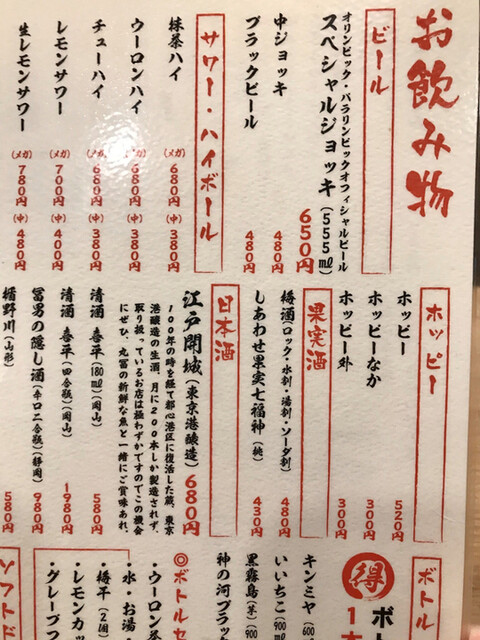 お飲み物
ビール
オリンピック・パラリンピックオフィシャルビール
スペシャルジョッキ(555㎖) 650円
中ジョッキ 480円
ブラックビール 480円
サワー・ハイボール
抹茶ハイ (メガ)680円 (中)380円
ウーロンハイ (メガ)680円 (中)380円
チューハイ (メガ)680円 (中)380円
レモンサワー (メガ)700円 (中)400円
生レモンサワー (メガ)780円 (中)480円
ホッピー
ホッピー 520円
ホッピーなか 300円
ホッピー外 300円
果実酒
梅酒(ロック・水割・湯割・ソーダ割) 480円
しあわせ果実七福神(桃) 430円
日本酒
江戸開城(東京港醸造) 680円
100年の時を経て都心港区に復活した蔵、東京
港醸造の生酒。月に200本しか製造されず、
取り扱っているお店は極わずかですのでこの機会
にぜひ、丸冨の新鮮な魚と一緒にご賞味あれ。
清酒 喜平(180㎖)(岡山) 580円
清酒 喜平(四合瓶)(岡山) 1980円
冨男の隠し酒(辛口二合瓶)(静岡) 980円
楯野川(山形) 580円
ボトル
得 ボト
1本
キンミヤ(900
いいちこ(900
黒霧島(芋)(900
神の河ブラック
◎ボトルセ
・ウーロン茶
・水・お湯・
・梅干(2個)
・レモンカッ
・グレープフ
ソフトド